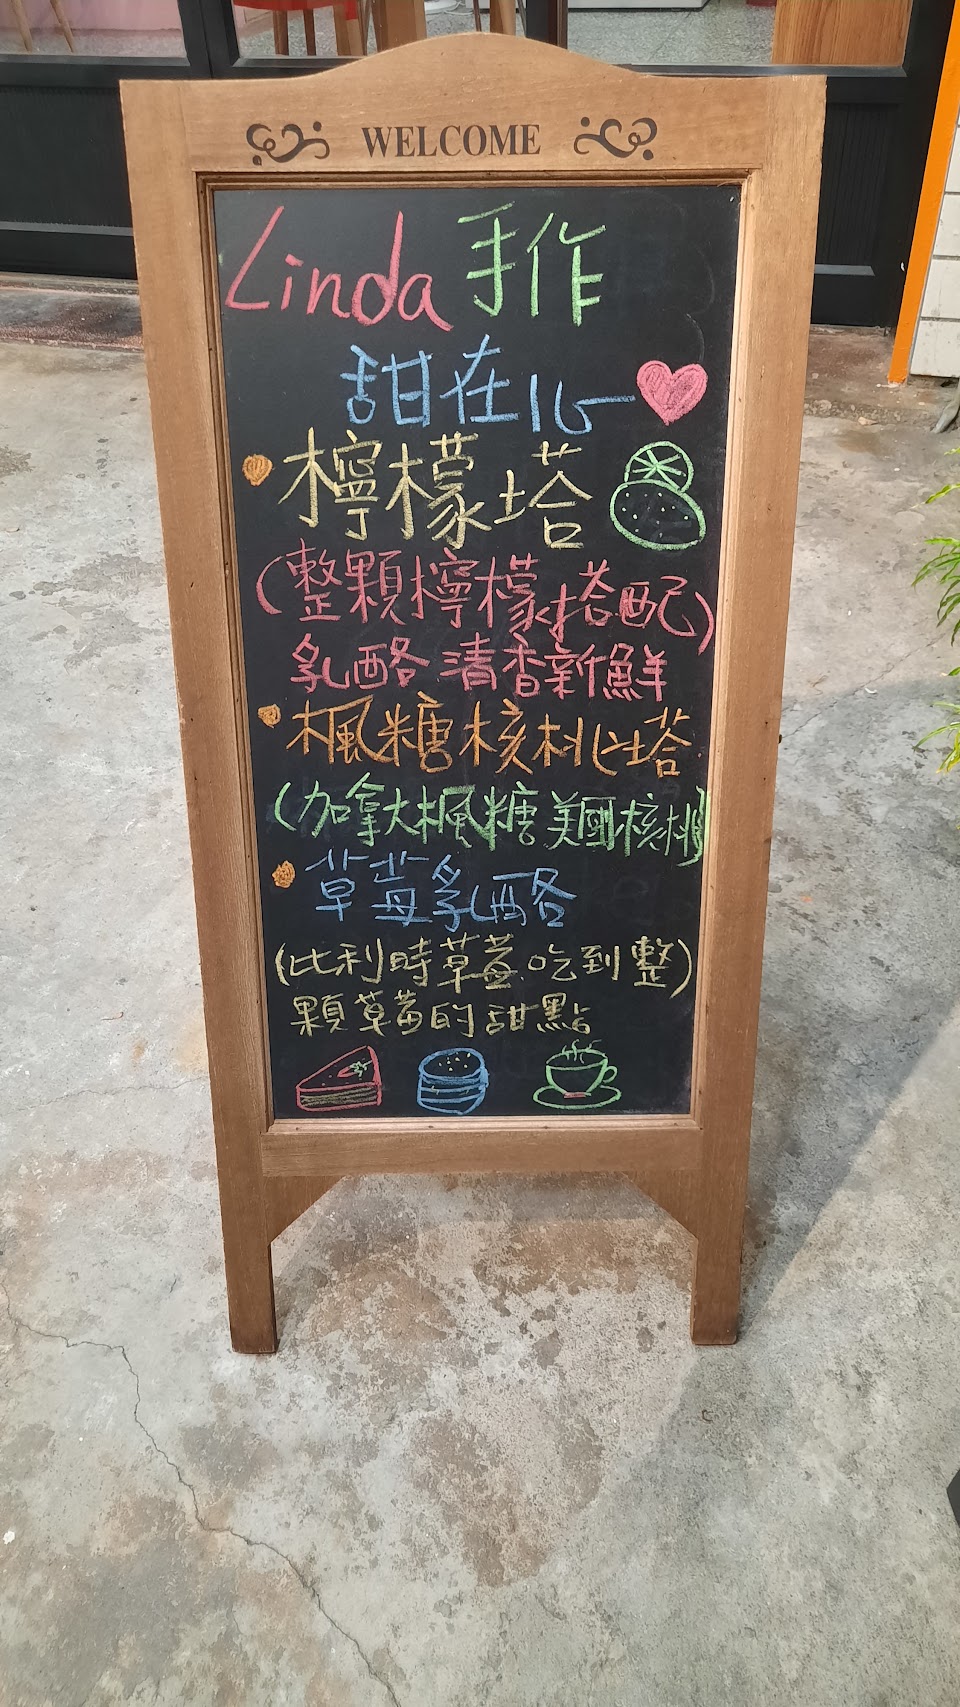 WELCOME
Linda 手作
甜在心
檸檬塔
(整顆檸檬搭配)
乳酪清香新鮮
楓糖核桃塔
(加拿大楓糖美國核桃)
草莓乳酪
(比利時草莓吃到整)
顆草莓的甜點